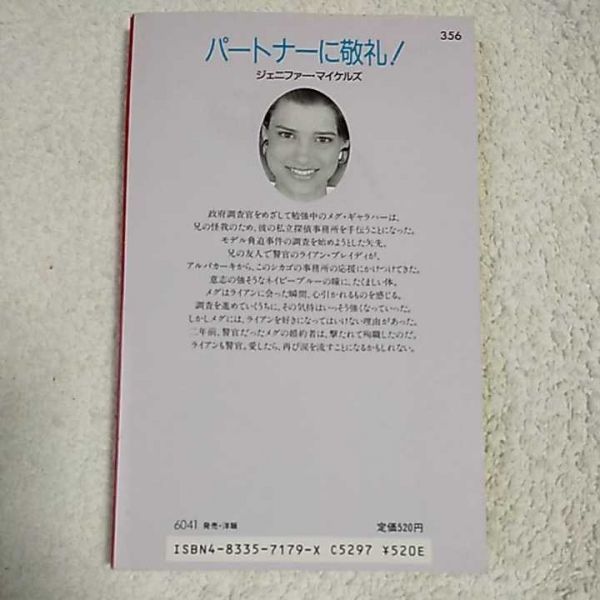 356
パートナーに敬礼!
ジェニファー・マイケルズ
政府調査官をめざして勉強中のメグ・ギャラハーは、
兄の怪我のため、彼の私立探偵事務所を手伝うことになった。
モデル脅迫事件の調査を始めようとした矢先、
兄の友人で警官のライアン・ブレイディが、
アルバカーキから、このシカゴの事務所の応援にかけつけてきた。
意志の強そうなネイビーブルーの瞳に、たくましい体。
メグはライアンに会った瞬間、心引かれるものを感じる。
調査を進めていくうちに、その気持はいっそう強くなっていった。
しかしメグには、ライアンを好きになってはいけない理由があった。
二年前、警官だったメグの婚約者は、撃たれて殉職したのだ。
ライアンも警官。愛したら、再び涙を流すことになるかもしれない。
6041 発売・洋販
定価520円
ISBN4-8335-7179-X C5297 ¥520E